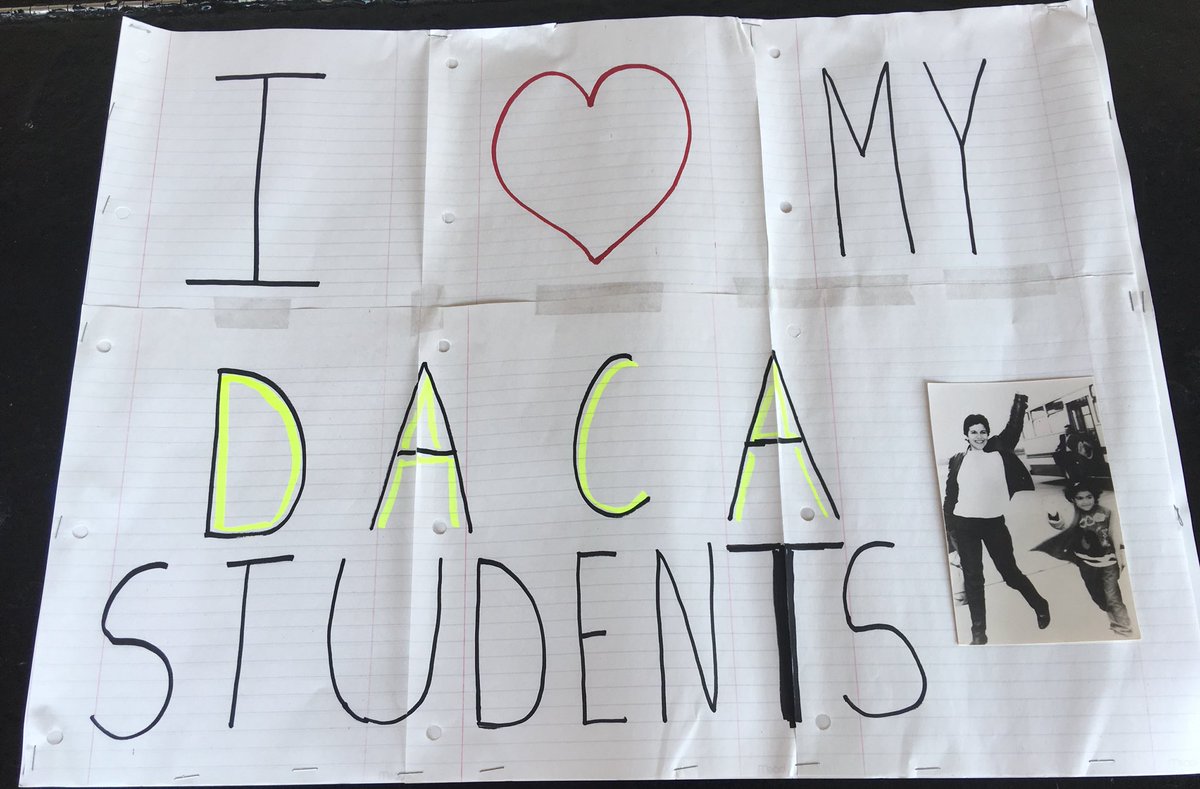 I ♥ MY
DACA
STUDENTS